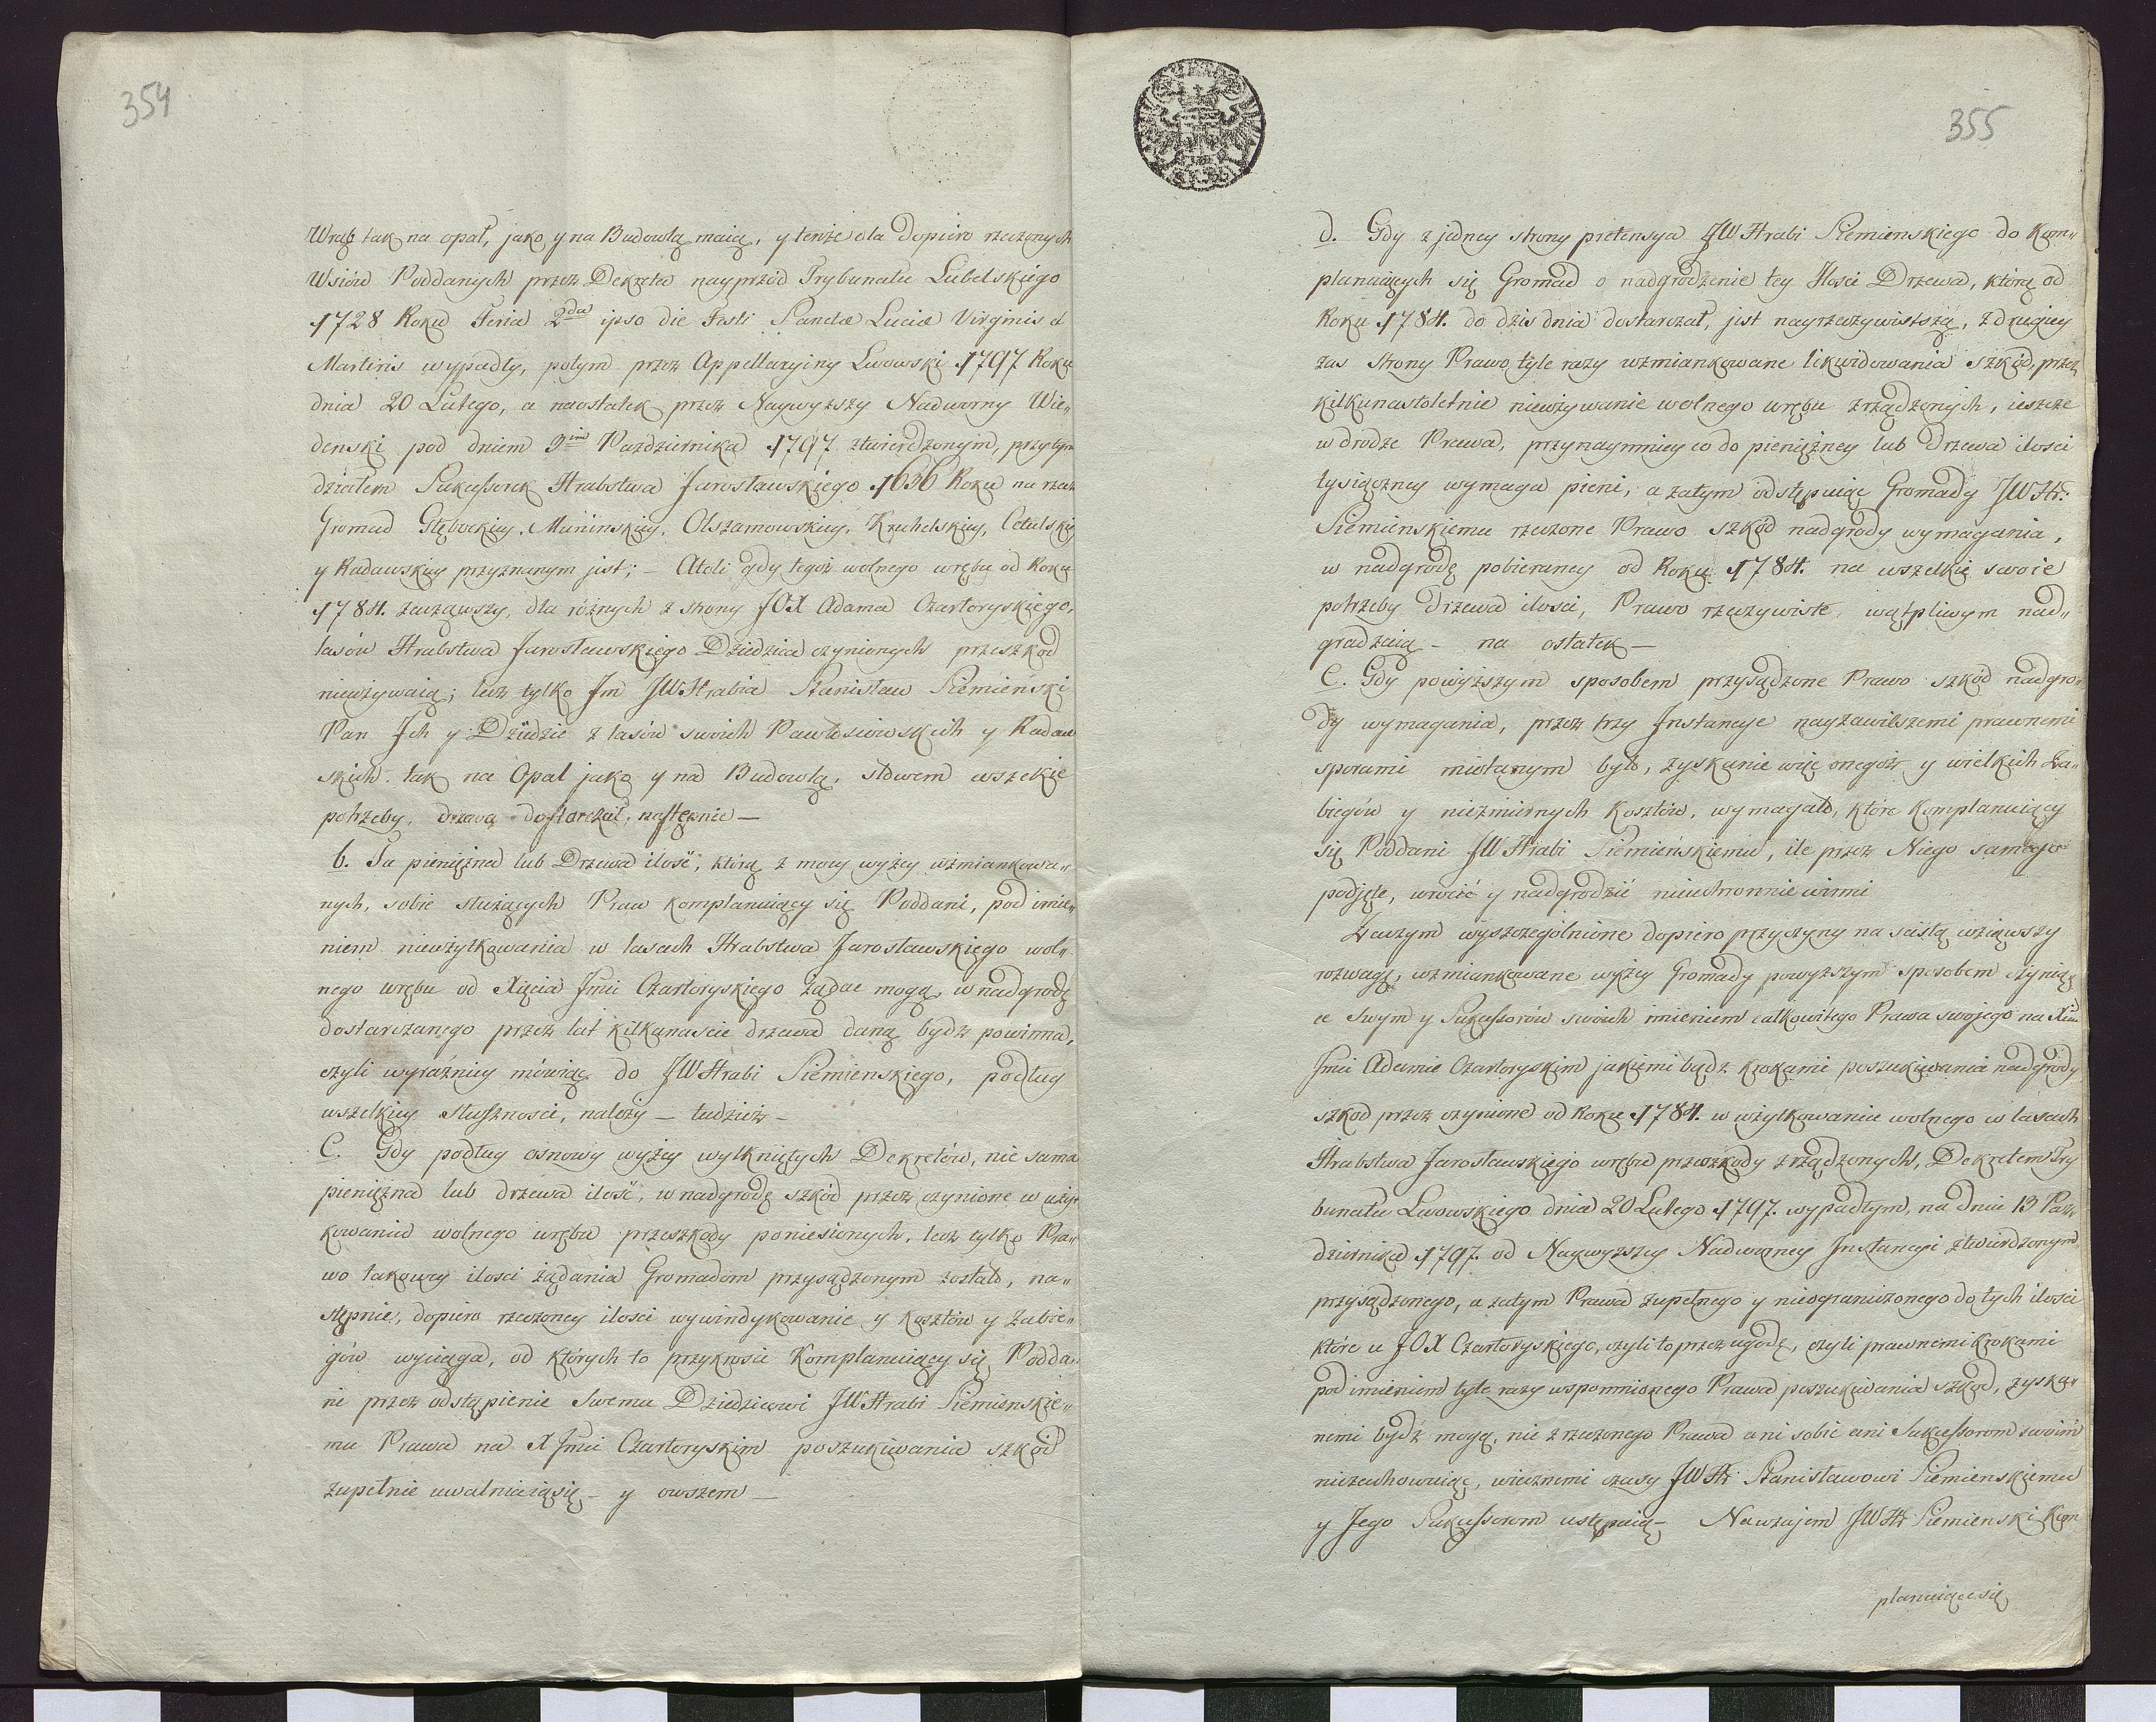 354
Wrąb tak na opał, jako y na Budowlą maią, y tenże dla dopiero rzeczonych
Wsiów Poddanych przez Dekreta nayprzód Trybunału Lubelskiego
1728 Roku Feria 2da ipso die Festi Sanctæ Luciæ Virginis &
Martiris wypadły, potym przez Appellacyiny Lwowski 1797 Roku
dnia 20 Lutego, a naostatek przez Naywyższy Nadworny Wie„
denski pod dniem Paździerńika 1797 ztwierdzonym, przytym
działem Sukcessorek Hrabstwa Jarosławskiego 1636 Roku na rzecz
Gromad Głębockiey, Munińskiey, Olszanowskiey, Kruhelskiey, Cetulskiey
y Radawskiey przyznanym jest; – Atoli gdy tegoż wolnego wrębu od Roku
1784. zacząwszy, dla różnych z strony JOX Adama Czartoryskiego,
lasów Hrabstwa Jarosławskiego Dziedzica czynionych przeszkod
nieużywaią; lecz tylko Im JWHrabia Stanisław Siemieński
Pan Ich y Dziedzic z lasów swoich Pawłosiowskich y Radaw
skich tak na Opał jako y na Budowlą, słowem wszelkie
potrzeby, drzewa dostarczał, następnie —
b. Ta pieniężna lub Drzewa ilość, którą z mocy wyżey wzmiankowa„
nych, sobie służących Praw komplanuiący się Poddani, pod imie„
niem nieużytkowania w lasach Hrabstwa Jarosławskiego wol„
nego wrębu od Xięcia Jmci Czartoryskiego żądać mogą, w nadgrodę
dostarczanego przez lat kilkanascie drzewa daną bydz powinna,
czyli wyraźniey mówiąc do JWHrabi Siemienskiego, podług
wszelkiey słuszności, należy – tudzież –
C. Gdy podług osnowy wyżey wytkniętych Dekretów, nie sama
pieniężna lub drzewa ilość, w nadgrodę szkód przez czynione w użyt
kowaniu wolnego wrębu przeszkody poniesionych, lecz tylko Pra„
wo takowey ilosci żądania Gromadom przysądzonym zostało, na„
stępnie, dopiero rzeczoney ilosci wywindykowanie y kosztów y zabie„
gów wyciąga, od których to przykrosci Komplanuiący się Podda„
ni przez odstąpienie Swemu Dziedzicowi JWHrabi Siemienskie„
mu Prawa na X Jmci Czartoryskim poszukiwania szkód
zupełnie uwalniaią się – y owszem —
355
d. Gdy z jedney strony pretensya JW Hrabi Siemienskiego do Kom„
planuiących się Gromad o nadgrodzenie tey Ilosci Drzewa, którą od
Roku 1784. do dzis dnia dostarczał, jest nayrzeczywistszą, z drugiey
zas strony Prawo tyle razy wzmiankowane likwidowania szkód, przez
kilkunastoletnie nieużywanie wolnego wrębu zrządzonych, ieszcze
w drodze Prawa, przynaymniey co do pieniężney lub Drzewa ilosci
tysiączney wymaga pieni, a zatym odstępuiąc Gromady JWHr:
Siemienskiemu rzeczone Prawo szkód nadgrody wymagania,
w nadgrodę pobieraney od Roku 1784. na wszelkie swoie
potrzeby drzewa ilosci, Prawo rzeczywiste wątpliwym nad„
gradzaią – na ostatek —
e. Gdy powyższym sposobem przysądzone Prawo szkód nadgro„
dy wymagania, przez trzy Instancye nayzawilszemi prawnemi
sporami miotanym było, zyskanie więc onegoż y wielkich Za„
biegów y niezmiernych kosztów, wymagało, które komplanuiący
się Poddani JW Hrabi Siemieńskiemu, ile przez Niego samego
podjęte, wrócić y nadgrodzić nieuchronnie winni
Zaczym wyszczególnione dopiero przyczyny na scisłą wziąwszy
rozwagę, wzmiankowane wyżey Gromady powyższym sposobem czynią
ce Swym y Sukcessorów swoich imieniem całkowitego Prawa swojego na Xciu
Jmci Adamie Czartoryskim jakiemi bądz krokami poszukiwania nadgrody
szkod przez czynione od Roku 1784. w użytkowaniu wolnego w lasach
Hrabstwa Jarosławskiego wrębu przeszkody zrządzonych, Dekretem Try
bunału Lwowskiego dnia 20 Lutego 1797. wypadłym, na dniu 13 Paź
dziernika 1797. od Naywyższey Nadworney Instancyi ztwierdzonym
przysądzonego, a zatym Prawa zupełnego y nieograniczonego do tych ilosci
które u JOX Czartoryskiego, czyli to przez ugodę, czyli prawnemi krokami
pod imieniem tyle razy wspomnionego Prawa poszukiwania szkod, zyska„
nemi bydź mogą, nic z rzeczonego Prawa ani sobie ani Sukcessorom swoim
niezachowuiąc, wiecznemi czasy JW Hr: Stanisławowi Siemienskiemu
y Jego Sukcessorom ustępuią – Nawzajem JWHr Siemienski Kom
planuiące się